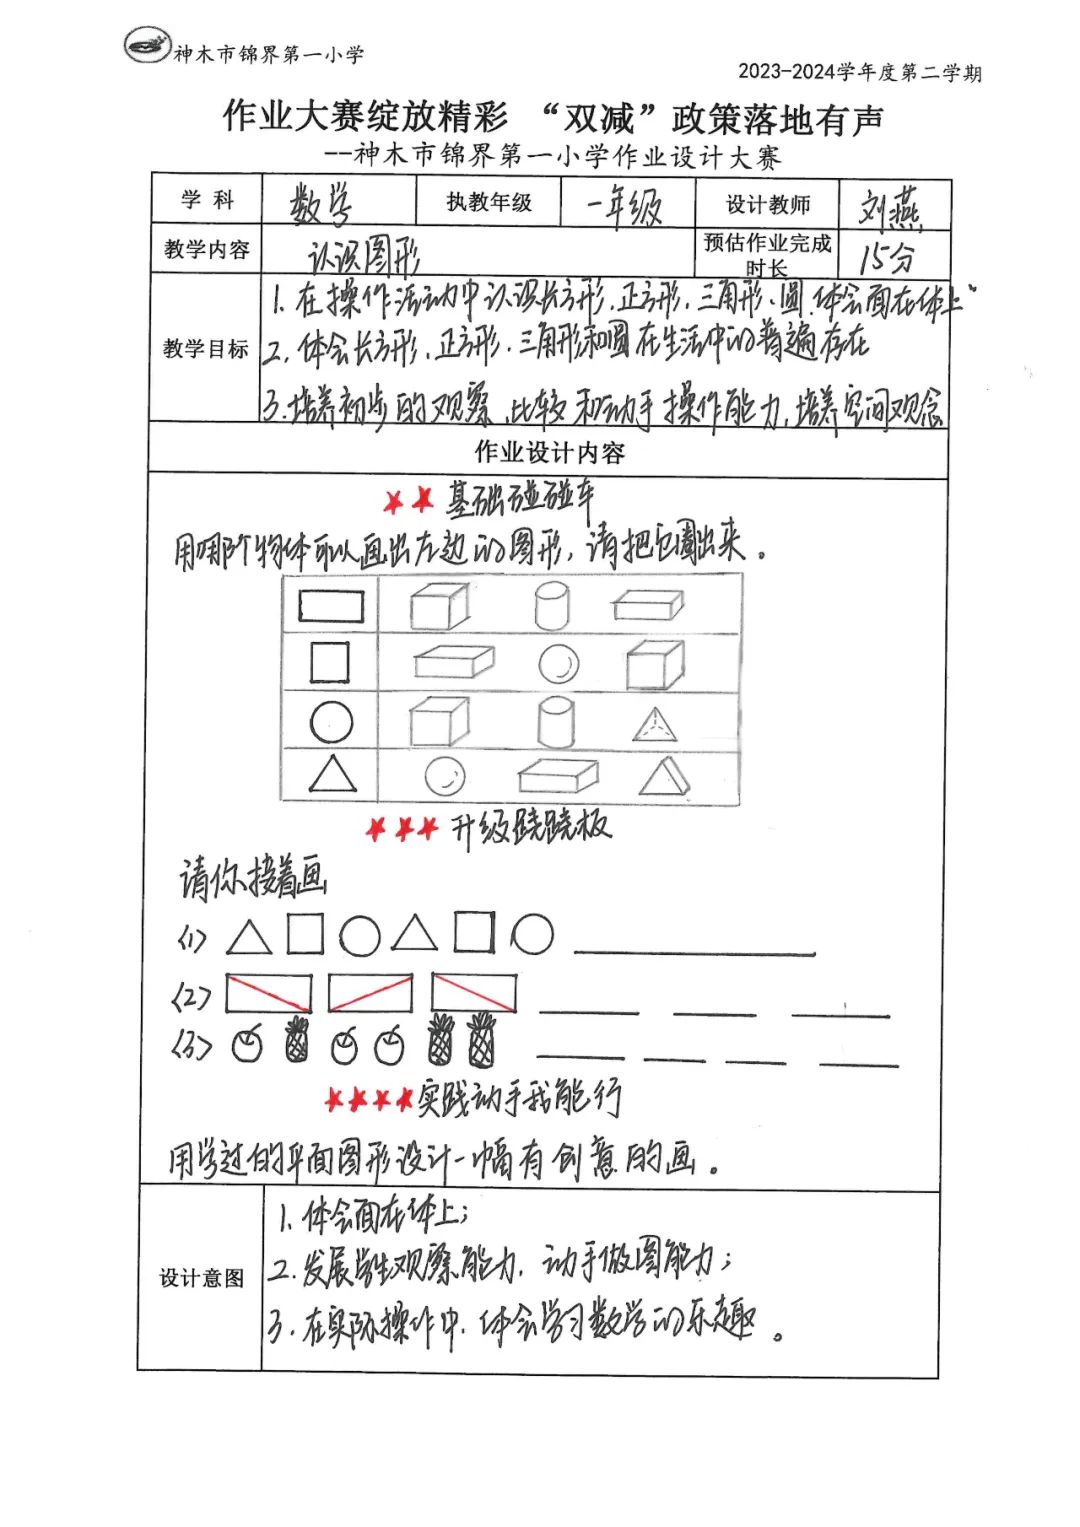 神木市锦界第一小学
2023-2024学年度第二学期
作业大赛绽放精彩 “双减”政策落地有声
--神木市锦界第一小学作业设计大赛
学 科 数学 执教年级 一年级 设计教师 刘燕
教学内容 认识图形 预估作业完成时长 15分
教学目标
1. 在操作活动中认识长方形、正方形、三角形、圆,体会“面在体上”
2. 体会长方形、正方形、三角形和圆在生活中的普遍存在
3.培养初步的观察、比较和动手操作能力,培养空间观念
作业设计内容
★★ 基础碰碰车
用哪个物体可以画出左边的图形,请把它圈出来。
★★★ 升级跷跷板
请你接着画
(1)
(2)
(3)
★★★★实践动手我能行
用学过的平面图形设计一幅有创意的画。
设计意图
1. 体会面在体上;
2. 发展学生观察能力,动手做图能力;
3. 在实际操作中,体会学习数学的乐趣。